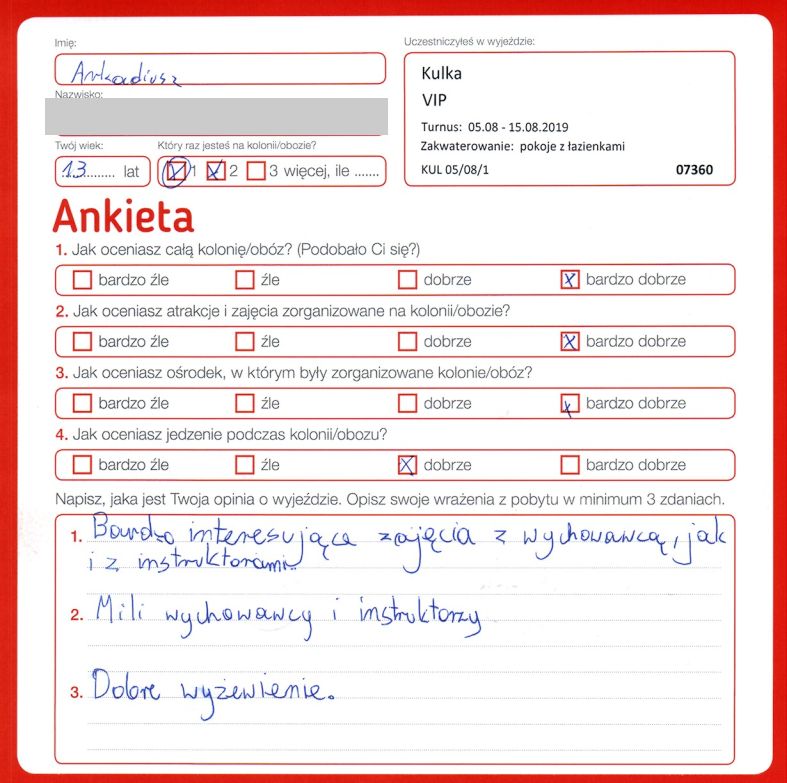 Imię:
Arkadiusz
Nazwisko:
Twój wiek:
13 lat
Który raz jesteś na kolonii/obozie?
1 2 3 więcej, ile .......
Uczestniczyłeś w wyjeździe:
Kulka
VIP
Turnus: 05.08 - 15.08.2019
Zakwaterowanie: pokoje z łazienkami
KUL 05/08/1 07360
Ankieta
1. Jak oceniasz całą kolonię/obóz? (Podobało Ci się?)
bardzo źle źle dobrze bardzo dobrze
2. Jak oceniasz atrakcje i zajęcia zorganizowane na kolonii/obozie?
bardzo źle źle dobrze bardzo dobrze
3. Jak oceniasz ośrodek, w którym były zorganizowane kolonie/obóz?
bardzo źle źle dobrze bardzo dobrze
4. Jak oceniasz jedzenie podczas kolonii/obozu?
bardzo źle źle dobrze bardzo dobrze
Napisz, jaka jest Twoja opinia o wyjeździe. Opisz swoje wrażenia z pobytu w minimum 3 zdaniach.
1. Bardzo interesujące zajęcia z wychowawcą, jak
i z instruktorami.
2. Mili wychowawcy i instruktorzy
3. Dobre wyżewienie.